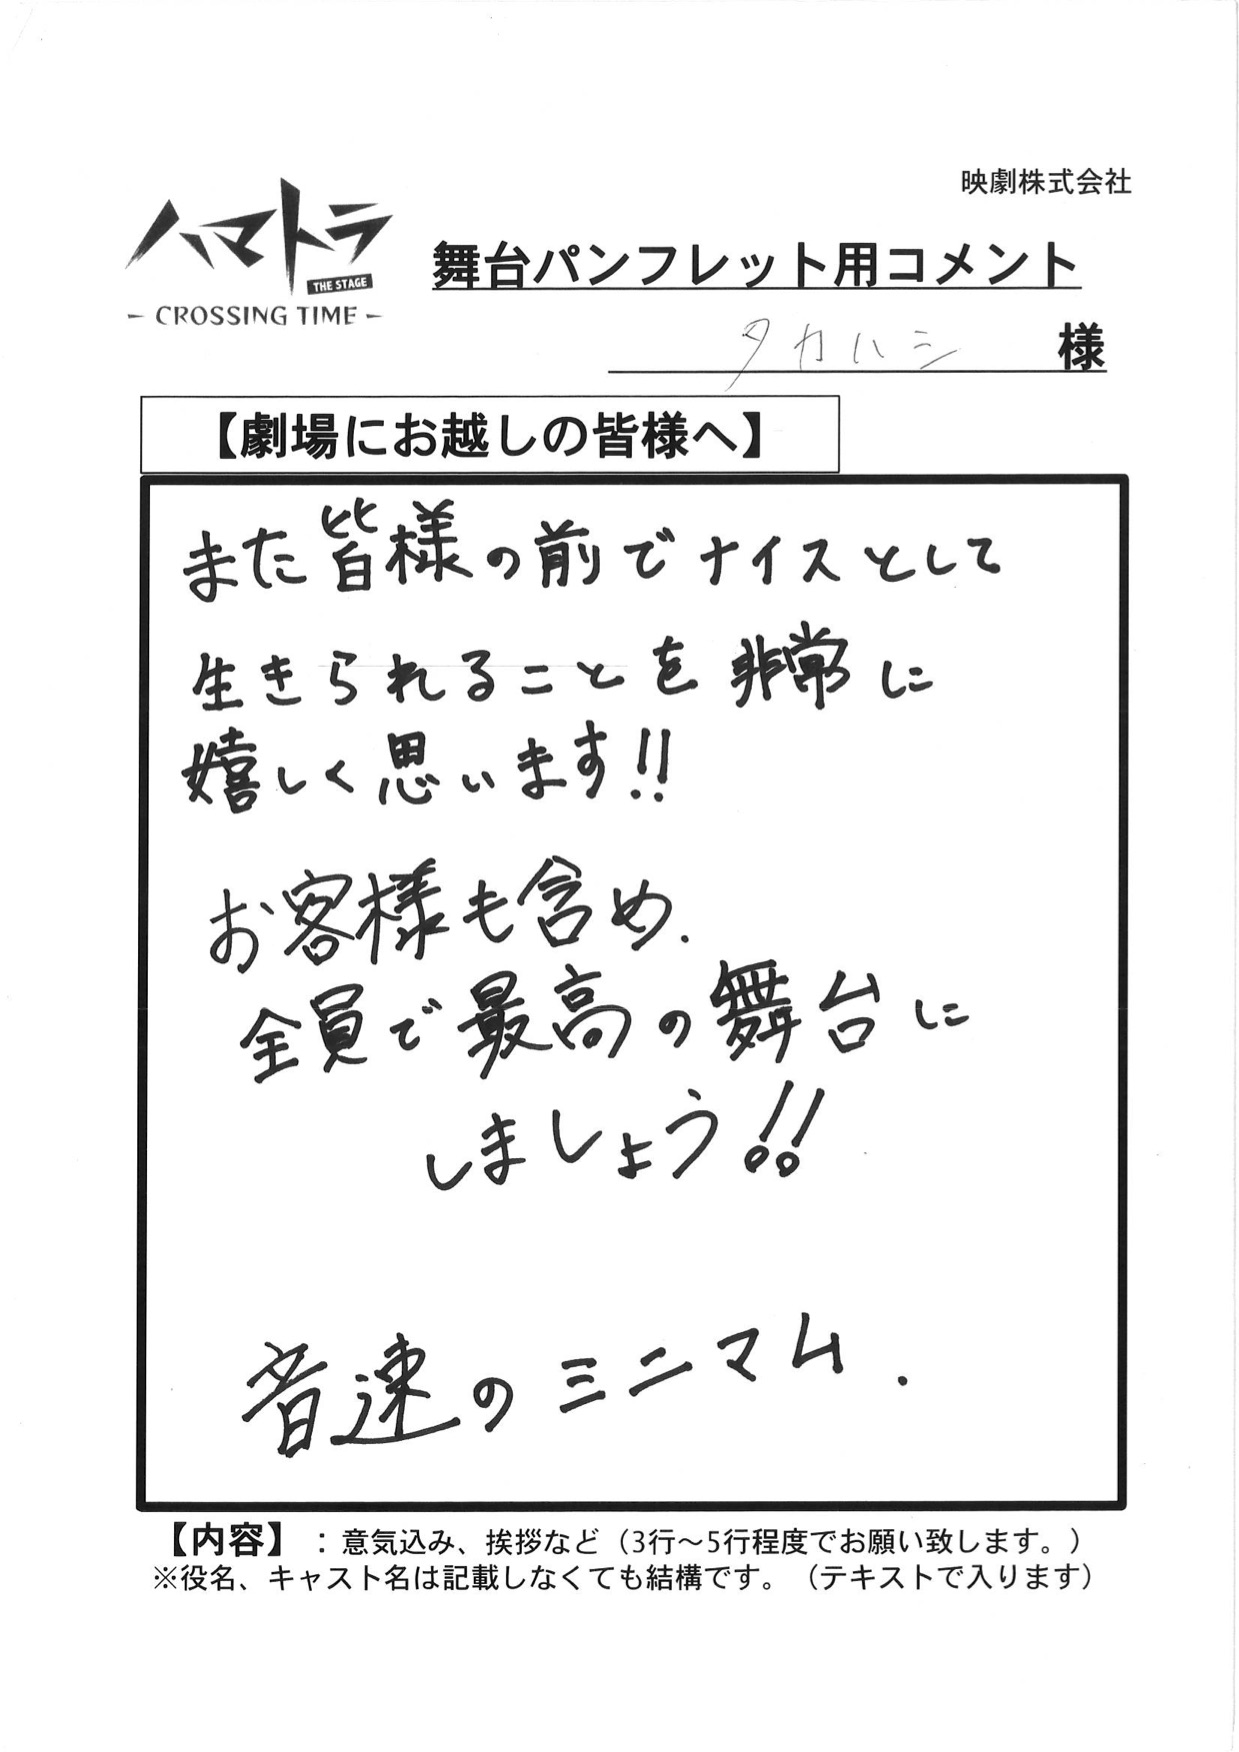 映劇株式会社
ハマトラ
THE STAGE
- CROSSING TIME -
舞台パンフレット用コメント
タカハシ 様
【劇場にお越しの皆様へ】
また皆様の前でナイスとして
生きられることを非常に
嬉しく思います!!
お客様も含め.
全員で最高の舞台に
しましょう!!
音速のミニマム.
【内容】:意気込み、挨拶など(3行〜5行程度でお願い致します。)
※役名、キャスト名は記載しなくても結構です。(テキストで入ります)